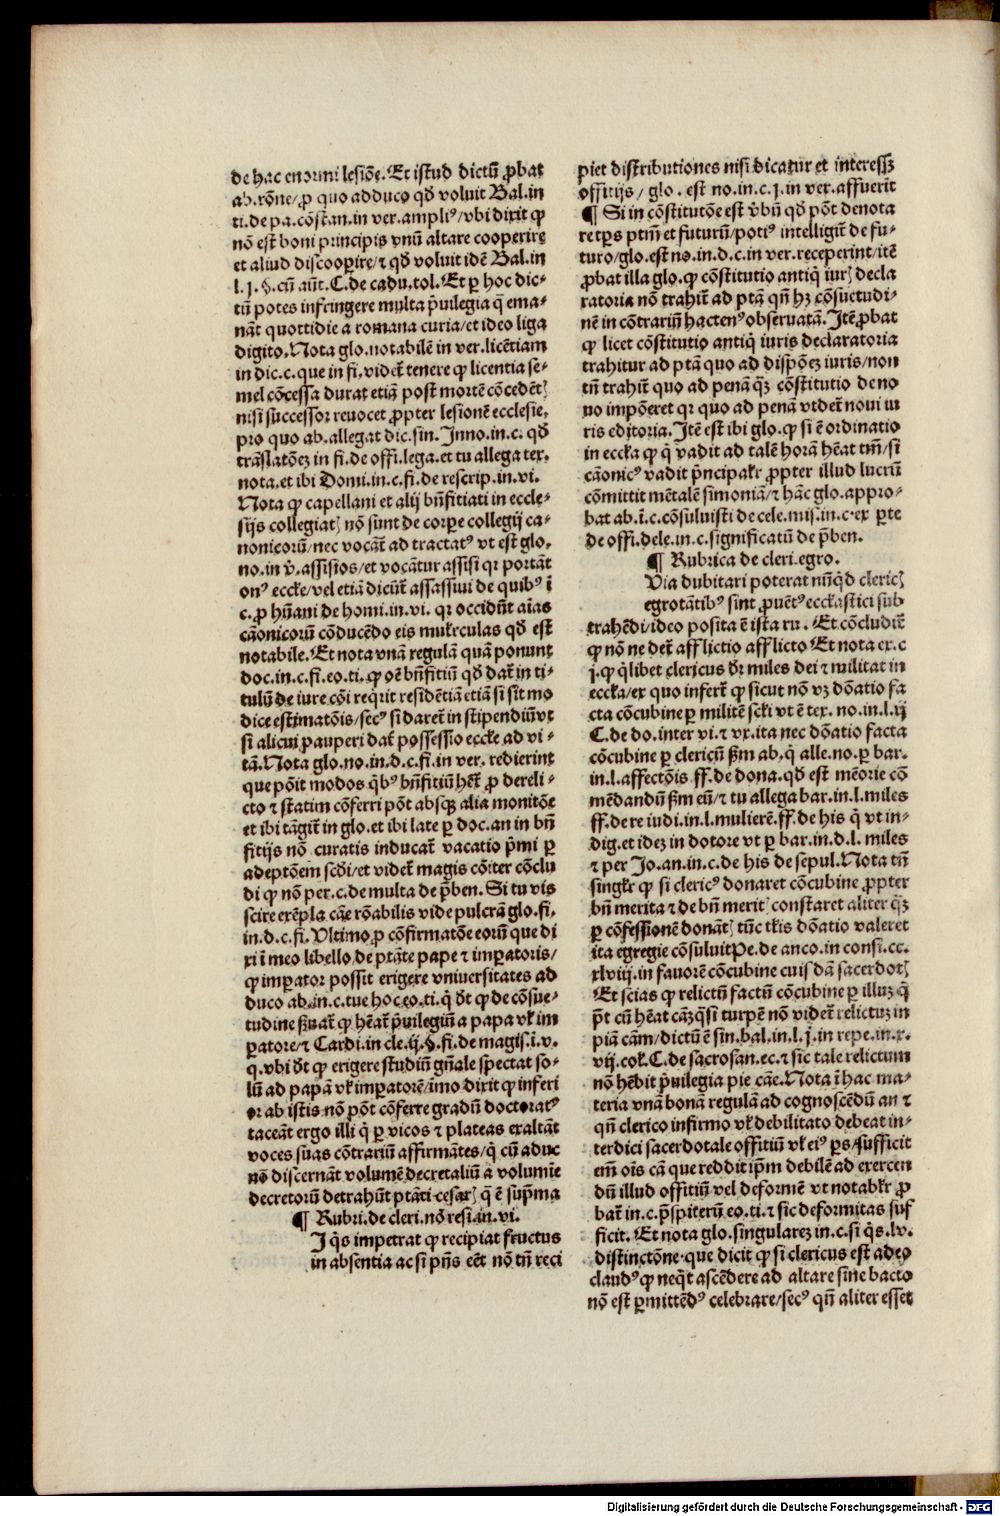 de hac enormi lesiõe. Et istud dictũ ꝓbat
ab. rõne/ꝓ quo adduco qď voluit Bal. in
ti. de pa. cõst. an. in ver. ampliꝰ/vbi dixit ꝙ
nõ est boni principis vnũ altare cooperire
et aliud discoop̱ire/⁊ qď voluit idẽ Bal. in
l. j. §. cũ aũt. C. de cadu. tol. Et ꝑ hoc dic-
tũ potes infringere multa p̃uilegia q̃ ema-
nãt quottidie a romana curia/et ideo liga
digito. Nota glo. notabilẽ in ver. licẽtiam
in dic. c. que in fi. videt̃ tenere ꝙ licentia se-
mel cõcessa durat etiã post mortẽ cõcedẽtꝭ
nisi successor reuocet ꝓpter lesionẽ ecclesie.
pro quo ab. allegat dic. sin. Inno. in. c. qď
trãslatõez in fi. de offi. lega. et tu allega tex.
nota. et ibi Domi. in. c. fi. de rescrip. in. vi.
Nota ꝙ capellani et alij bñfitiati in eccle-
sijs collegiatꝭ nõ sunt de corpe collegij ca-
nonicorũ/nec vocãt̃ ad tractatꝰ vt est glo.
no. in ṽ. assisios/et vocãtur assisi qr portãt
onꝰ eccłe/vel etiã dicũt̃ assassiui de quibꝰ ĩ
c. ꝓ hũani de homi. in. vi. qr occidũt aĩas
cãonicorũ cõducẽdo eis mulr̃culas qď est
notabile. Et nota vnã regulã quã ponunt
doc. in. c. fi. eo. ti. ꝙ oẽ bñfitiũ qď dat̃ in ti-
tulũ de iure cõi reqrit residẽtiã etiã si sit mo
dice estimatõis/secꝰ si daret̃ in stipendiũ vt
si alicui pauperi dat̃ possessio eccłe ad vi-
tã. Nota glo. no. in. d. c. fi. in ver. redierint
que põit modos q̃bꝰ bñfitiũ hẽt̃ ꝓ dereli-
cto ⁊ statim cõferri põt absqꝫ alia monitõe
et ibi tãgit̃ in glo. et ibi late ꝑ doc. an in bñ
fitijs nõ curatis inducat̃ vacatio p̃mi ꝑ
adeptõem scďi/et videt̃ magis cõiter cõclu
di ꝙ nõ per. c. de multa de p̃ben. Si tu vis
scire exẽpla cãe rõabilis vide pulcrã glo. fi.
in. d. c. fi. Vltimo ꝓ cõfirmatõe eorũ que di
xi ĩ meo libello de ptãte pape ⁊ imꝑatoris/
ꝙ imꝑator possit erigere vniuersitates ad
duco ab. in. c. tue hoc eo. ti. q̃ ďt ꝙ de cõsue-
tudine ẜuat̃ ꝙ hẽat̃ p̃uilegiũ a papa vł im
ꝑatore/⁊ Cardi. in cle. ij. §. fi. de magis. ĩ. v.
q. vbi ďt ꝙ erigere studiũ gñale spectat so-
lũ ad papã vł imꝑatorẽ/imo dixit ꝙ inferi
or ab istis nõ põt cõferre gradũ doctoratꝰ
taceãt ergo illi q̃ ꝑ vicos ⁊ plateas exaltãt
voces suas cõtrariũ affirmãtes/q̃ cũ aduc
nõ discernãt volumẽ decretaliũ a volumĩe
decretorũ detrahũt ptãti cesarꝭ q̃ ẽ sup̃ma
¶ Rubri. de cleri. nõ resi. in. vi.
I q̃s impetrat ꝙ recipiat fructus
in absentia ac si pñs eẽt nõ tñ reci
piet distributiones nisi dicatur et interessꝫ
offitijs/ glo. est no. in. c. j. in ver. affuerit
¶ Si in cõstitutõe est ṽbũ qď põt denota
re tp̃s ptm̃ et futurũ/potiꝰ intelligit̃ de fu-
turo/glo. est no. in. d. c. in ver. receperint/itẽ
ꝓbat illa glo. ꝙ cõstitutio antiq̃ iurꝭ decla
ratoria nõ trahit̃ ad ptã qñ hꝫ cõsuetudi-
nẽ in cõtrariũ hactenꝰ obseruatã. Itẽ ꝓbat
ꝙ licet cõstitutio antiq̃ iuris declaratoria
trahitur ad ptã quo ad disp̃õez iuris/non
tñ trahit̃ quo ad penã q̃ꝫ cõstitutio de no
uo impõeret qr quo ad penã vtdet̃ noui iu
ris editoria. Itẽ est ibi glo. ꝙ si ẽ ordinatio
in eccła ꝙ q̃ vadit ad talẽ horã hẽat tm̃/si
cãonicꝰ vadit p̃ncipalr̃ ꝓpter illud lucrũ
cõmittit mẽtalẽ simoniã/⁊ hãc glo. appro-
bat ab. ĩ. c. cõsuluisti de cele. mis. in. c. ex ꝑte
de offi. dele. in. c. significatũ de p̃ben.
¶ Rubrica de cleri. egro.
Via dubitari poterat nũq̃d clericꝭ
egrotãtibꝰ sint ꝓuẽtꝰ ecclãstici sub
trahẽdi/ideo posita ẽ ista ru. Et cõcludit̃
ꝙ nõ ne det̃ afflictio afflicto Et nota ex. c
j. ꝙ q̃libet clericus ďr miles dei ⁊ militat in
eccła/ex quo infert̃ ꝙ sicut nõ vꝫ dõatio fa
cta cõcubine ꝑ militẽ scłi vt ẽ tex. no. in. l. ij
C. de do. inter vi. ⁊ vx. ita nec dõatio facta
cõcubine ꝑ clericũ ẜm ab. q̃ alle. no. ꝑ bar.
in. l. affectõis. ff. de dona. qď est mẽorie cõ
mẽdandũ ẜm eũ/⁊ tu allega bar. in. l. miles
ff. de re iudi. in. l. mulierẽ. ff. de his q̃ vt in-
dig. et idez in dotore vt ꝑ bar. in. d. l. miles
⁊ per Jo. an. in. c. de his de sepul. Nota tñ
singłr ꝙ si clericꝰ donaret cõcubine ꝓpter
bñ merita ⁊ de bñ meritꝭ constaret aliter q̃ꝫ
ꝑ cõfessionẽ donãtꝭ tũc tłis dõatio valeret
ita egregie cõsuluit Pe. de anco. in consi. cc.
xlviij. in fauorẽ cõcubine cuisdã sacerdotꝭ
Et scias ꝙ relictũ factũ cõcubine ꝑ illuz q̃
p̃t cũ hẽat cãzq̃si turpẽ nõ videt̃ relictuz in
piã cãm/dictũ ẽ sin. bal. in l. j. in repe. in. x.
vij. col. C. de sacrosan. ec. ⁊ sic tale relictum
nõ hẽbit p̃uilegia pie cãe. Nota ĩ hac ma-
teria vnã bonã regulã ad cognoscẽdũ an ⁊
qñ clerico infirmo vł debilitato debeat in-
terdici sacerdotale offitiũ vł eiꝰ ꝑs/sufficit
em̃ oĩs cã que reddit ip̃m debilẽ ad exercen
dũ illud offitiũ vel deformẽ vt notabłr ꝓ
bat̃ in. c. p̃spiterũ eo. ti. ⁊ sic deformitas suf
ficit. Et nota glo. singularez in. c. si q̃s. lv.
distinctõne. que dicit ꝙ si clericus est adeo
claudꝰ ꝙ neq̃t ascẽdere ad altare sine bacto
nõ est ꝑmittẽdꝰ celebrare/secꝰ qñ aliter esset
Digitalisierung gefördert durch die Deutsche Forschungsgemeinschaft - DFG